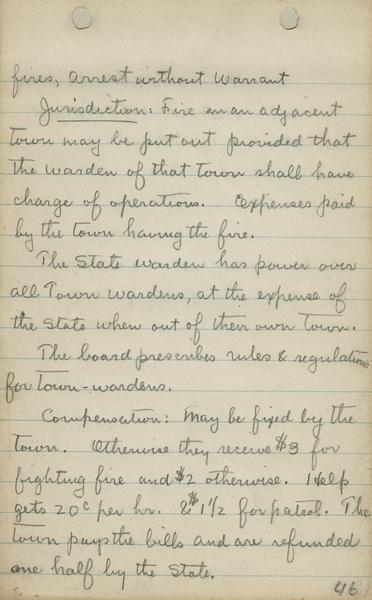 fires, arrest without warrant
Jurisdiction: Fire in an adjacent
Town may be put out provided that
the warden of that town shall have
charge of operations. Expenses paid
by the town having the fire.
The State warden has power over
all Town wardens, at the expense of
the State when out of their own Town.
The board prescribes rules & regulations
for town-wardens.
Compensation: May be fixed by the
Town. Otherwise they receive $3 for
fighting fire and $2 otherwise. Help
gets 20c per hr. & $1 1/2 for patrol. The
Town pays the bills and are refunded
one half by the State.
46